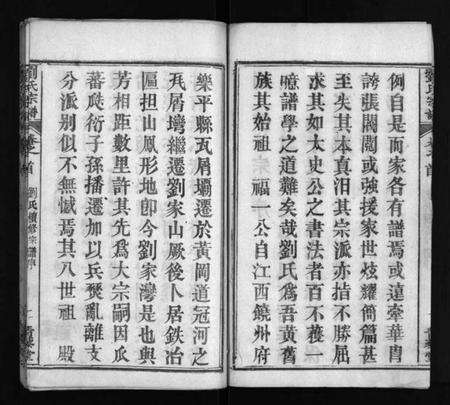 例自是而家各有譜焉或遠牽華冑
誇張閥閱或強援家世炫耀簡篇甚
至失其本真汨其宗派亦指不勝屈
求其如太史公之書法者百不獲一
噫譜學之道難矣哉劉氏爲吾黃舊
族其始祖 福一公自江西饒州府
樂平縣瓦屑壩遷於黃岡道冠河之
瓦屑壪繼遷劉家山厥後卜居鉄冶
區担山鳳形地即今劉家灣是也與
芳相距數里許其先爲大宗嗣因瓜
蕃瓞衍子孫播遷加以兵燹亂離支
分派別似不無憾焉其八世祖 殿
劉氏宗譜
卷首
劉氏續修宗譜序